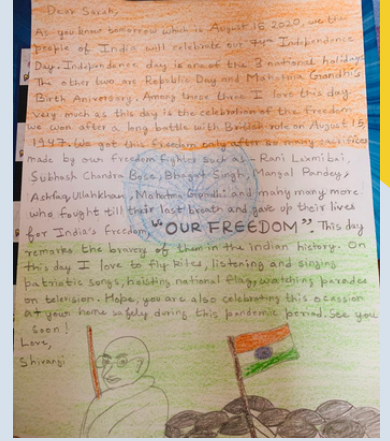 Dear Sarah,
As you know tomorrow which is August 15 2020, we the
people of India will celebrate our Independence
Day. Independence day is one of the 3 national holidays
The other two are Republic Day and Mahatma Gandhi's
Birth Aniversery. Among these three I love this day
very much as this day is the celebration of the freedom
we won after a long battle with British rule on August 15,
1947. We got this freedom only after so many sacrifices
made by our freedom fighter such as - Rani Laxmibai,
Subhash Chandra Bose, Bhagat Singh, Mangal Pandey,
Ashfaq Ullahkhan, Mahatma Gandhi and many many more
who fought till their last breath and gave up their lives
for India's freedom "OUR FREEDOM". This day
remarks the bravery of them in the Indian history. On
this day I love to fly kites, listening and singing
patriatic songs, hoisting national flag, watching paradee
on telension. Hope, you are also celebrating this ocassion
at your home safely during this pandemic period. See you
soon!
Love,
Shivangi